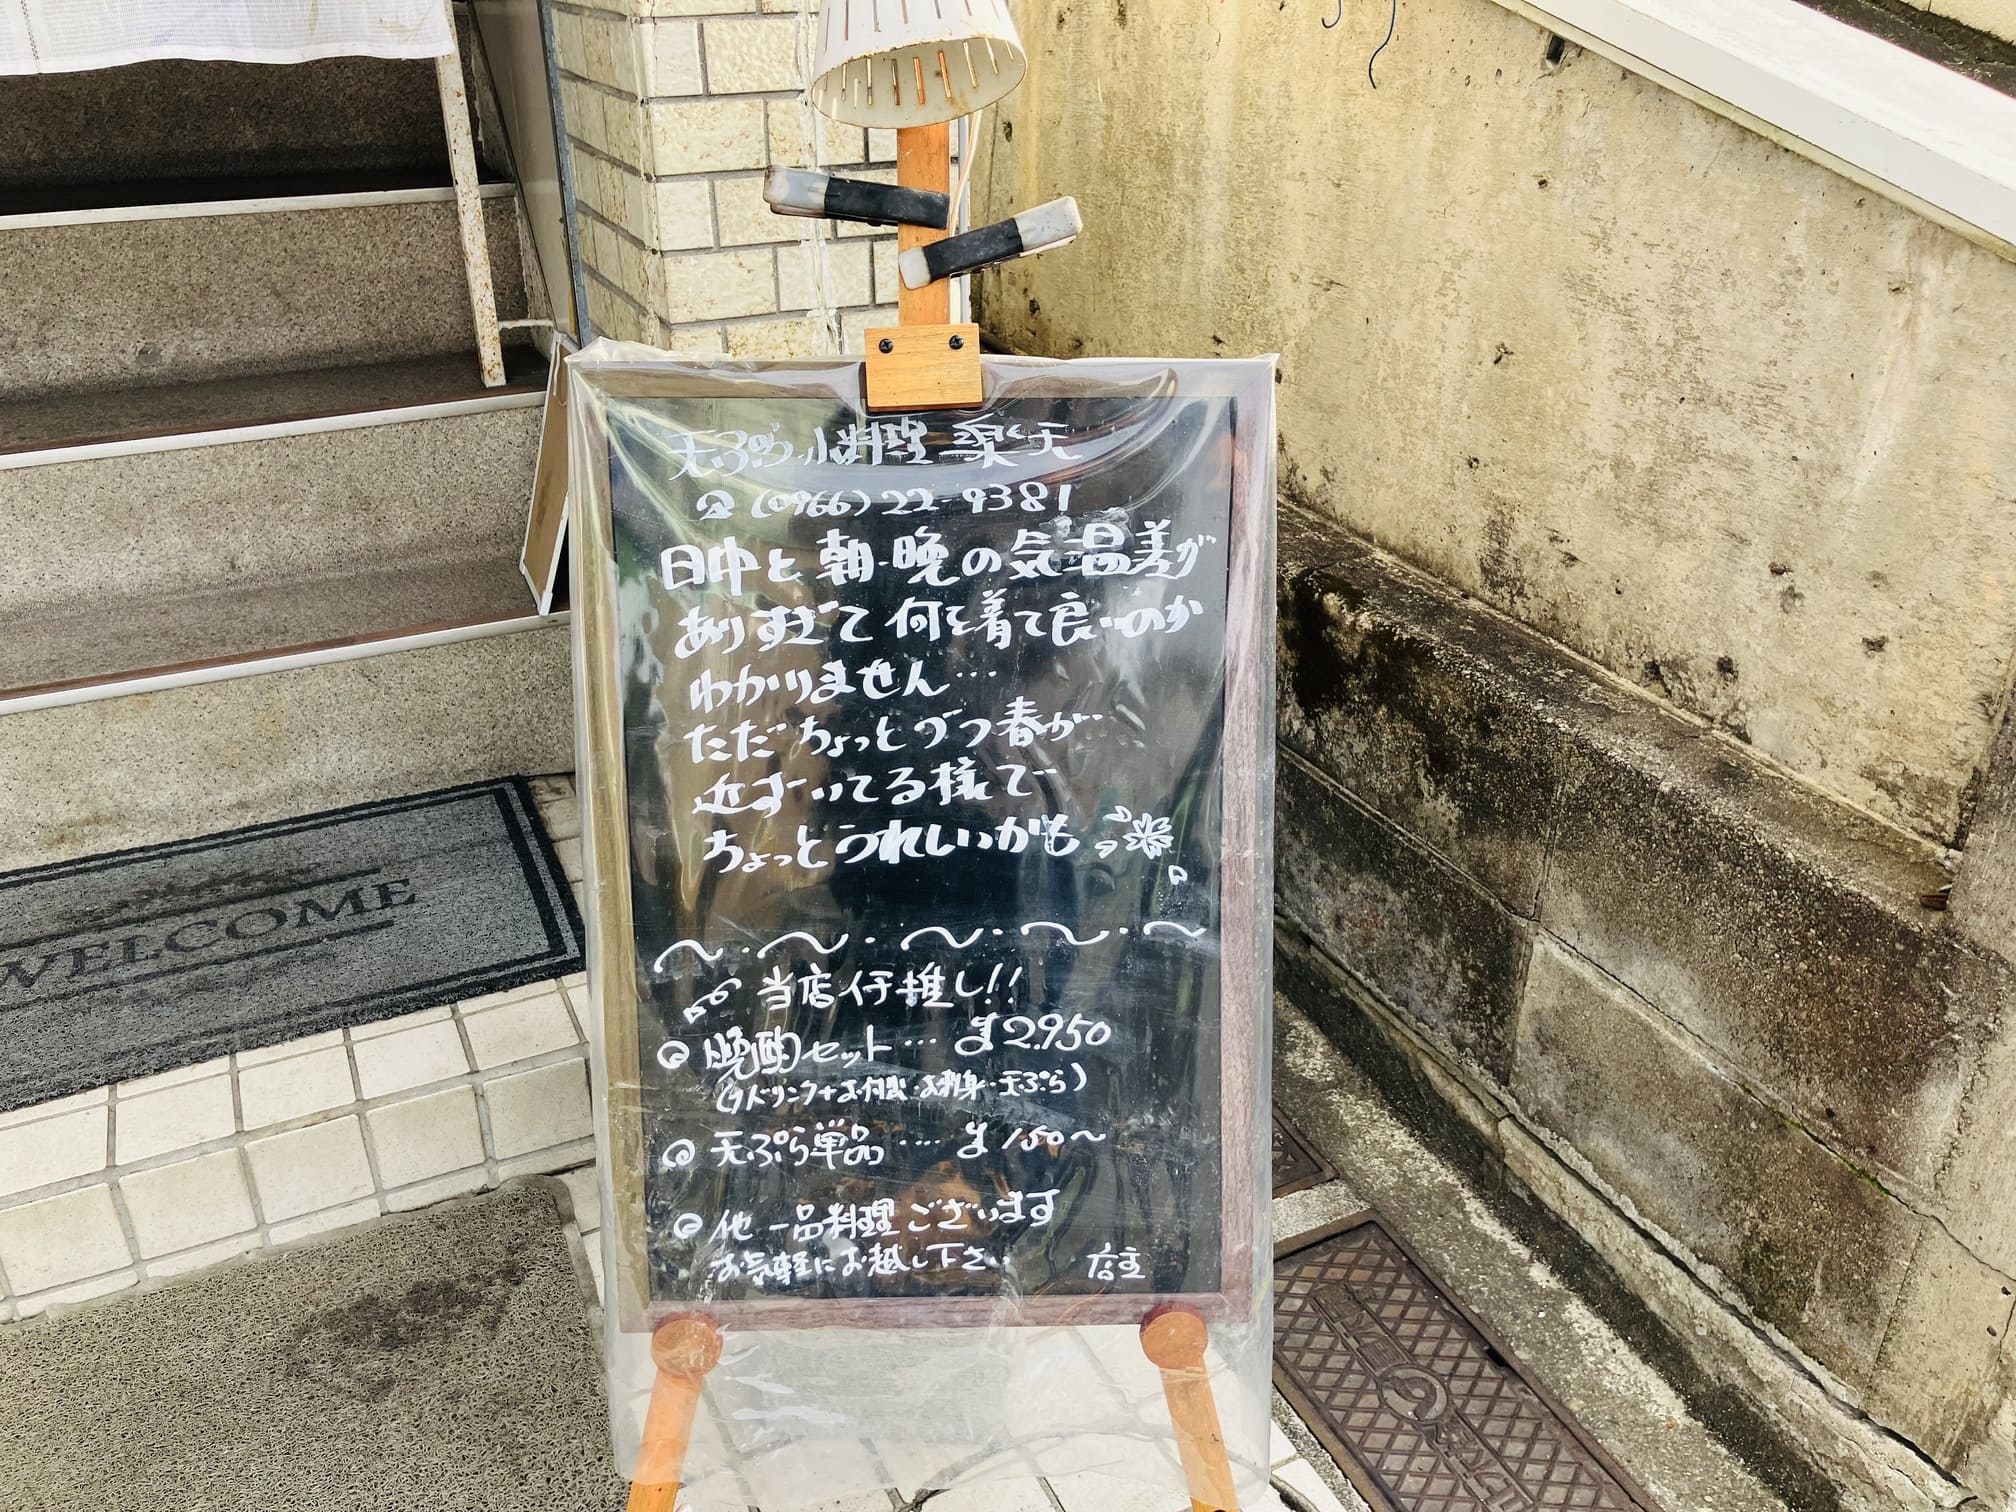 天ぷら小料理 楽天
☎(0966)22-9381
日中と朝・晩の気温差が
ありすぎて何を着て良いのか
わかりません…
ただちょっとづつ春が…
近ずいてる様で
ちょっとうれしいかも
当店イチ推し!!
晩酌セット… ¥2.950
(1ドリンク+お付出・お刺身・天ぷら)
天ぷら単品…. ¥150~
他 一品料理ございます
お気軽にお越し下さい 店主
WELCOME